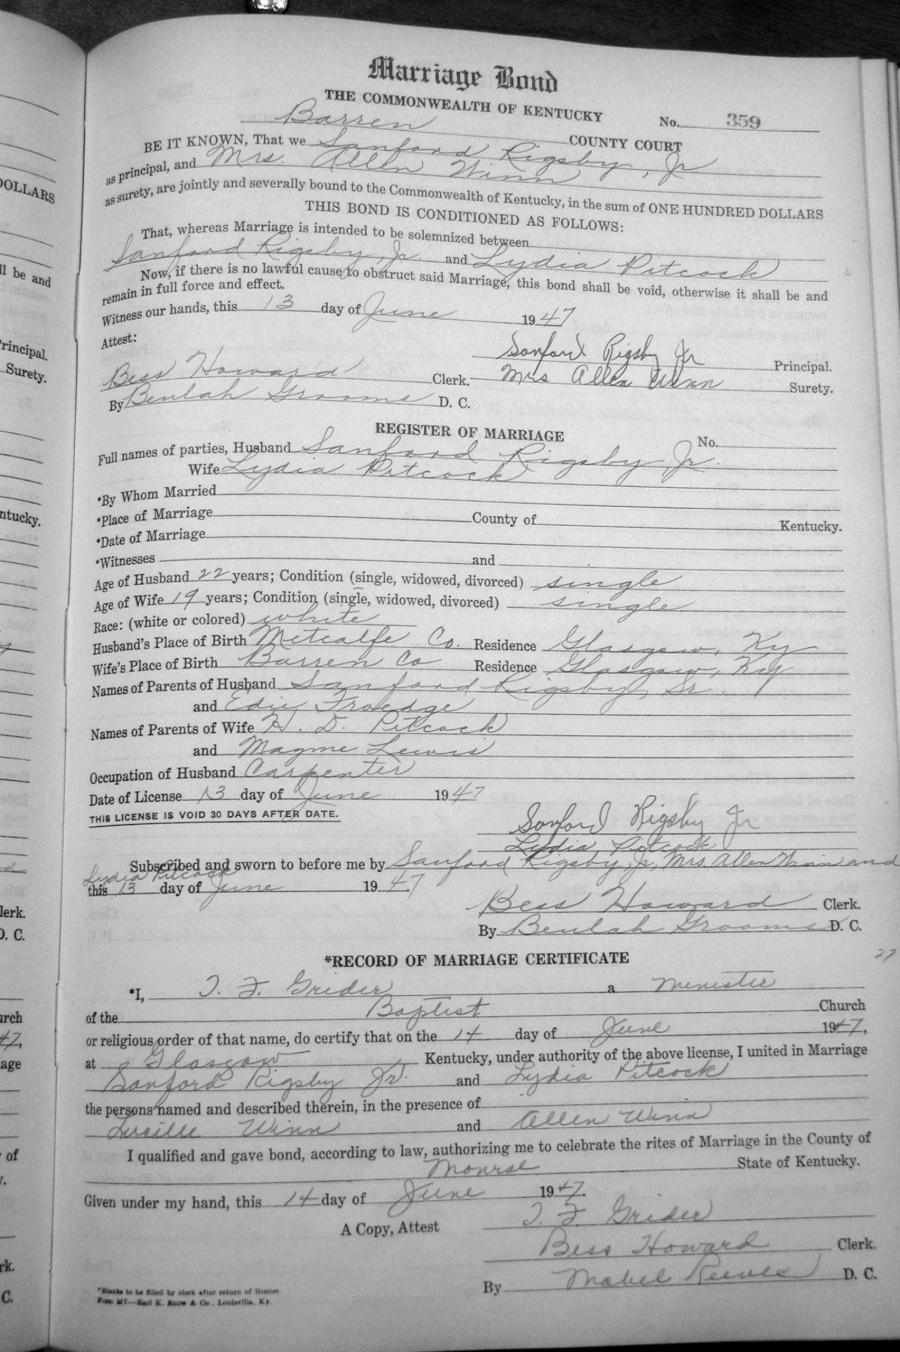 Marriage Bond
THE COMMONWEALTH OF KENTUCKY No. 359
Barren COUNTY COURT
BE IT KNOWN, That we Sanford Rigsby, Jr
as principal, and Mrs. Allen Winn
as surety, are jointly and severally bound to the Commonwealth of Kentucky, in the sum of ONE HUNDRED DOLLARS
THIS BOND IS CONDITIONED AS FOLLOWS:
That, whereas Marriage is intended to be solemnized between
Sanford Rigsby, Jr. and Lydia Pitcock
Now, if there is no lawful cause to obstruct said Marriage, this bond shall be void, otherwise it shall be and
remain in full force and effect.
Witness our hands, this 13 day of June 1947
Attest:
Sanford Rigsby Jr Principal.
Bess Howard Clerk. Mrs Allen Winn Surety.
By Beulah Grooms D. C.
REGISTER OF MARRIAGE
Full names of parties, Husband Sanford Rigsby Jr. No.
Wife Lydia Pitcock
*By Whom Married
*Place of Marriage County of Kentucky.
*Date of Marriage
*Witnesses and
Age of Husband 22 years; Condition (single, widowed, divorced) single
Age of Wife 19 years; Condition (single, widowed, divorced) single
Race: (white or colored) white
Husband's Place of Birth Metcalfe Co. Residence Glasgow, Ky
Wife's Place of Birth Barren Co Residence Glasgow, Ky
Names of Parents of Husband Sanford Rigsby, Sr.
and Edie Froedge
Names of Parents of Wife H. D. Pitcock
and Magme Lewis
Occupation of Husband Carpenter
Date of License 13 day of June 1947
THIS LICENSE IS VOID 30 DAYS AFTER DATE.
Sanford Rigsby Jr
Lydia Pitcock
Subscribed and sworn to before me by Sanford Rigsby, Jr, Mrs. Allen Winn and
Lydia Pitcock
this 13 day of June 1947
Bess Howard Clerk.
By Beulah Grooms D. C.
*RECORD OF MARRIAGE CERTIFICATE
*I, J. F. Grider a Menister
of the Baptist Church
or religious order of that name, do certify that on the 14 day of June 1947,
at Glasgow Kentucky, under authority of the above license, I united in Marriage
Sanford Rigsby Jr. and Lydia Pitcock
the persons named and described therein, in the presence of
Lucille Winn and Allen Winn
I qualified and gave bond, according to law, authorizing me to celebrate the rites of Marriage in the County of
Monroe State of Kentucky.
Given under my hand, this 14 day of June 1947.
J. F. Grider
A Copy, Attest
Bess Howard Clerk.
By Mabel Reeves D. C.
*Blanks to be filled by clerk after return of license.
Form M7—Earl K. Snow & Co., Louisville, Ky.
DOLLARS
ll be and
rincipal.
Surety.
ntucky.
lerk.
D. C.
urch
47,
age
of
rk.
C.
27